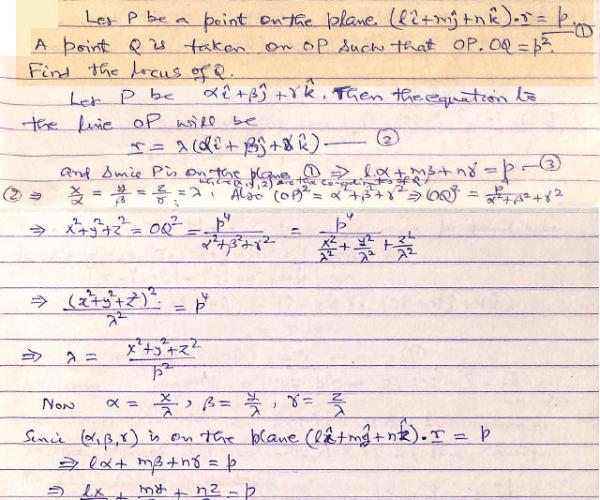 Let P be a point on the plane. (lî+mĵ+nk̂)·r = p. ①
A point Q is taken on OP such that OP.OQ = p².
Find the locus of Q.
Let P be αî+βĵ+γk̂. Then the equation to
the line OP will be
r = λ(αî+βĵ+γk̂) —— ②
and since P is on the plane ① ⇒ lα+mβ+nγ = p. —③
where (x,y,z) are the co-ordinates of Q
② ⇒ x/α = y/β = z/γ = λ, Also (OP)² = α²+β²+γ² ⇒ (OQ)² = p⁴/α²+β²+γ²
⇒ x²+y²+z² = OQ² = p⁴/α²+β²+γ² = p⁴/x²/λ²+y²/λ²+z²/λ²
⇒ (x²+y²+z²)²/λ² = p⁴
⇒ λ = x²+y²+z²/p²
Now α = x/λ, β = y/λ, γ = z/λ
Since (α,β,γ) is on the plane (lî+mĵ+nk̂)·r = p
⇒ lα+mβ+nγ = p
⇒ lx + my + nz = p